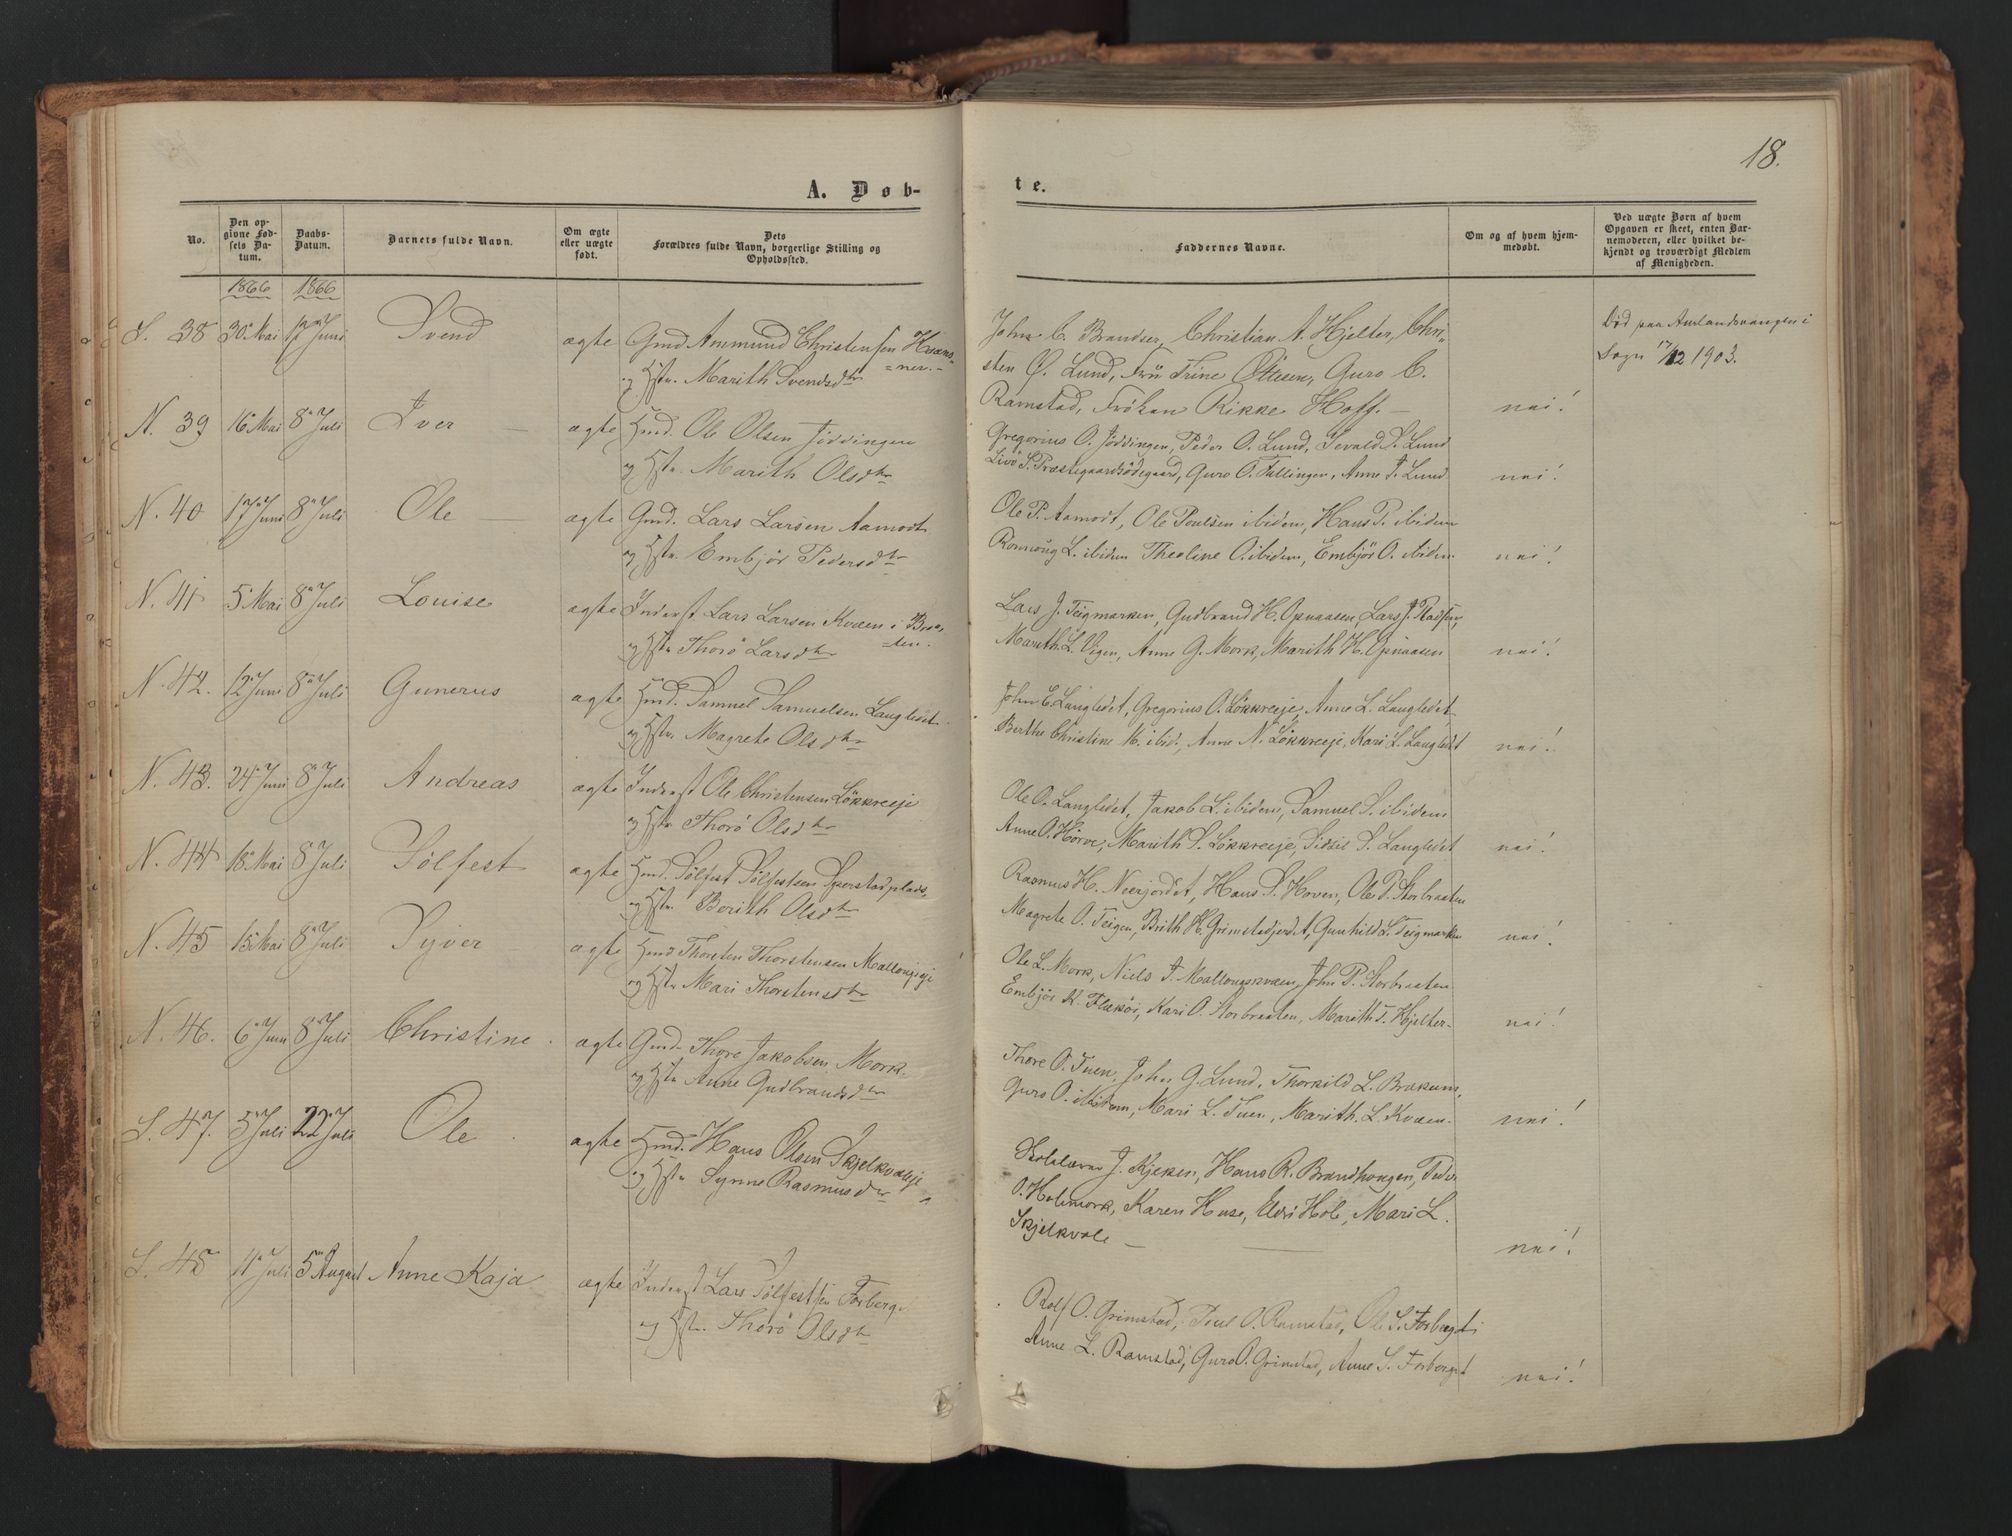 18.
A. Døb-
te.
No.
Den op-
givne Fød-
sels Da-
tum.
Daabs-
Datum.
Barnets fulde Navn.
Om ægte
eller uægte
født.
Dets
Forældres fulde Navn, borgerlige Stilling og
Opholdssted.
Faddernes Navne.
Om og af hvem hjem-
medøbt.
Ved uægte Børn af hvem
Opgaven er skeet, enten Bar-
nemoderen, eller hvilket be-
kjendt og troværdigt Medlem
af Menigheden.
1866 1866
S. 38 30 Mai 17 Juni Svend ægte Gmd Ammund Christensen
og Hstr. Marith Svendsdtr
John C. Brandser, Christian A. Hjelter, Chri-
sten Lund, Frü Trine Ottesen, Guro C.
Ramstad, Frøken Rikke Hoff. nei!
Død paa Aurlandsvangen i
Sogn 17/12 1903.
N. 39 16 Mai 8 Juli Iver ægte Hmd. Ole Olsen Jöddingen
og Hstr. Marith Olsdtr
Gregorius O. Jöddingen, Peder O. Lund, Sevald S. Lund
Guro O. Fallingen, Anne T. Lund nei!
N. 40 17 Juni 8 Juli Ole ægte Gmd. Lars Larsen Aamodt
og Hstr. Embjör Pedersdtr
Ole P. Aamodt, Ole Poulsen ibidem, Hans P. ibidem
Ronnoug L. ibidem Theoline O. ibidem, Embjör O. ibidem nei!
N. 41 5 Mai 8 Juli Louise ægte Inderst Lars Larsen Kvæen i Braa-
ten.
og Hstr Thorö Larsdtr
Lars J. Teigmarken, Gudbrand H. Opnaasen, Lars J.
Marith L. Vigen, Anne G. Mork, Marith H. Opnaasen nei!
N. 42. 12 Juni 8 Juli Gunerus ægte Hmd. Samuel Samuelsen Langledet
og Hstr. Magrete Olsdtr
John E. Langledet, Gregorius O. Lökkreeje, Anne L. Langledet
Berthe Christine M. ibid., Anne N. Lökkreeje, Kari L. Langledet nei!
N. 43. 24 Juni 8 Juli Andreas ægte Inderst Ole Christensen Lökkreeje
og Hstr Thorö Olsdtr
Ole O. Langledet, Jakob L. ibidem, Samuel S. ibidem
Anne O. Hörve, Marith S. Lökkreeje, Sidsel S. Langledet nei!
N. 44 18 Mai 8 Juli Sölfest ægte Hmd. Sölfest Sölfestsen Sperstadplads,
og Hstr. Berith Olsdtr
Rasmus H. Neerjordet, Hans S. Hoven, Ole P. Storbraaten
Magrete O. Teigen, Brith H. Grimstadjordet, Gunhild L. Teigmarken nei!
N. 45 15 Mai 8 Juli Syver ægte Hmd Thorsten Thorstensen
og Hstr Mari Thorstensdtr
Ole L. Mork, Niels T. John P. Storbraaten
Embjör K. Flæköi, Kari O. Storbraaten, Marith T. Hjelter nei!
N. 46. 6 Juni 8 Juli Christine ægte Gmd. Thore Jakobsen Mork.
og Hstr Anne Gudbrandsdtr
Thore O. Tuen, John G. Lund, Thorkild L. Brakum,
Guro O. ibidem, Mari L. Tuen, Marith L. Kvæen. nei!
S. 47. 5 Juli 22 Juli Ole ægte Hmd. Hans Olsen Skjelkvaleje
og Hstr Synne Rasmusdtr
Skolelærer J. Kjeken, Hans R. Brandhougen, Peder
O. Holemork, Karen Huse, Eldri Hole, Mari L.
Skjelkvale nei!
S. 48 11 Juli 5 August Anne Kaja ægte Inderst Lars Sölfestsen Forberg
og Hstr. Thorö Olsdtr
Rolf O. Grimstad, Poul O. Ramstad, Ole S. Forberget
Anne L. Ramstad, Guro O. Grimstad, Anne S. Forberget nei!